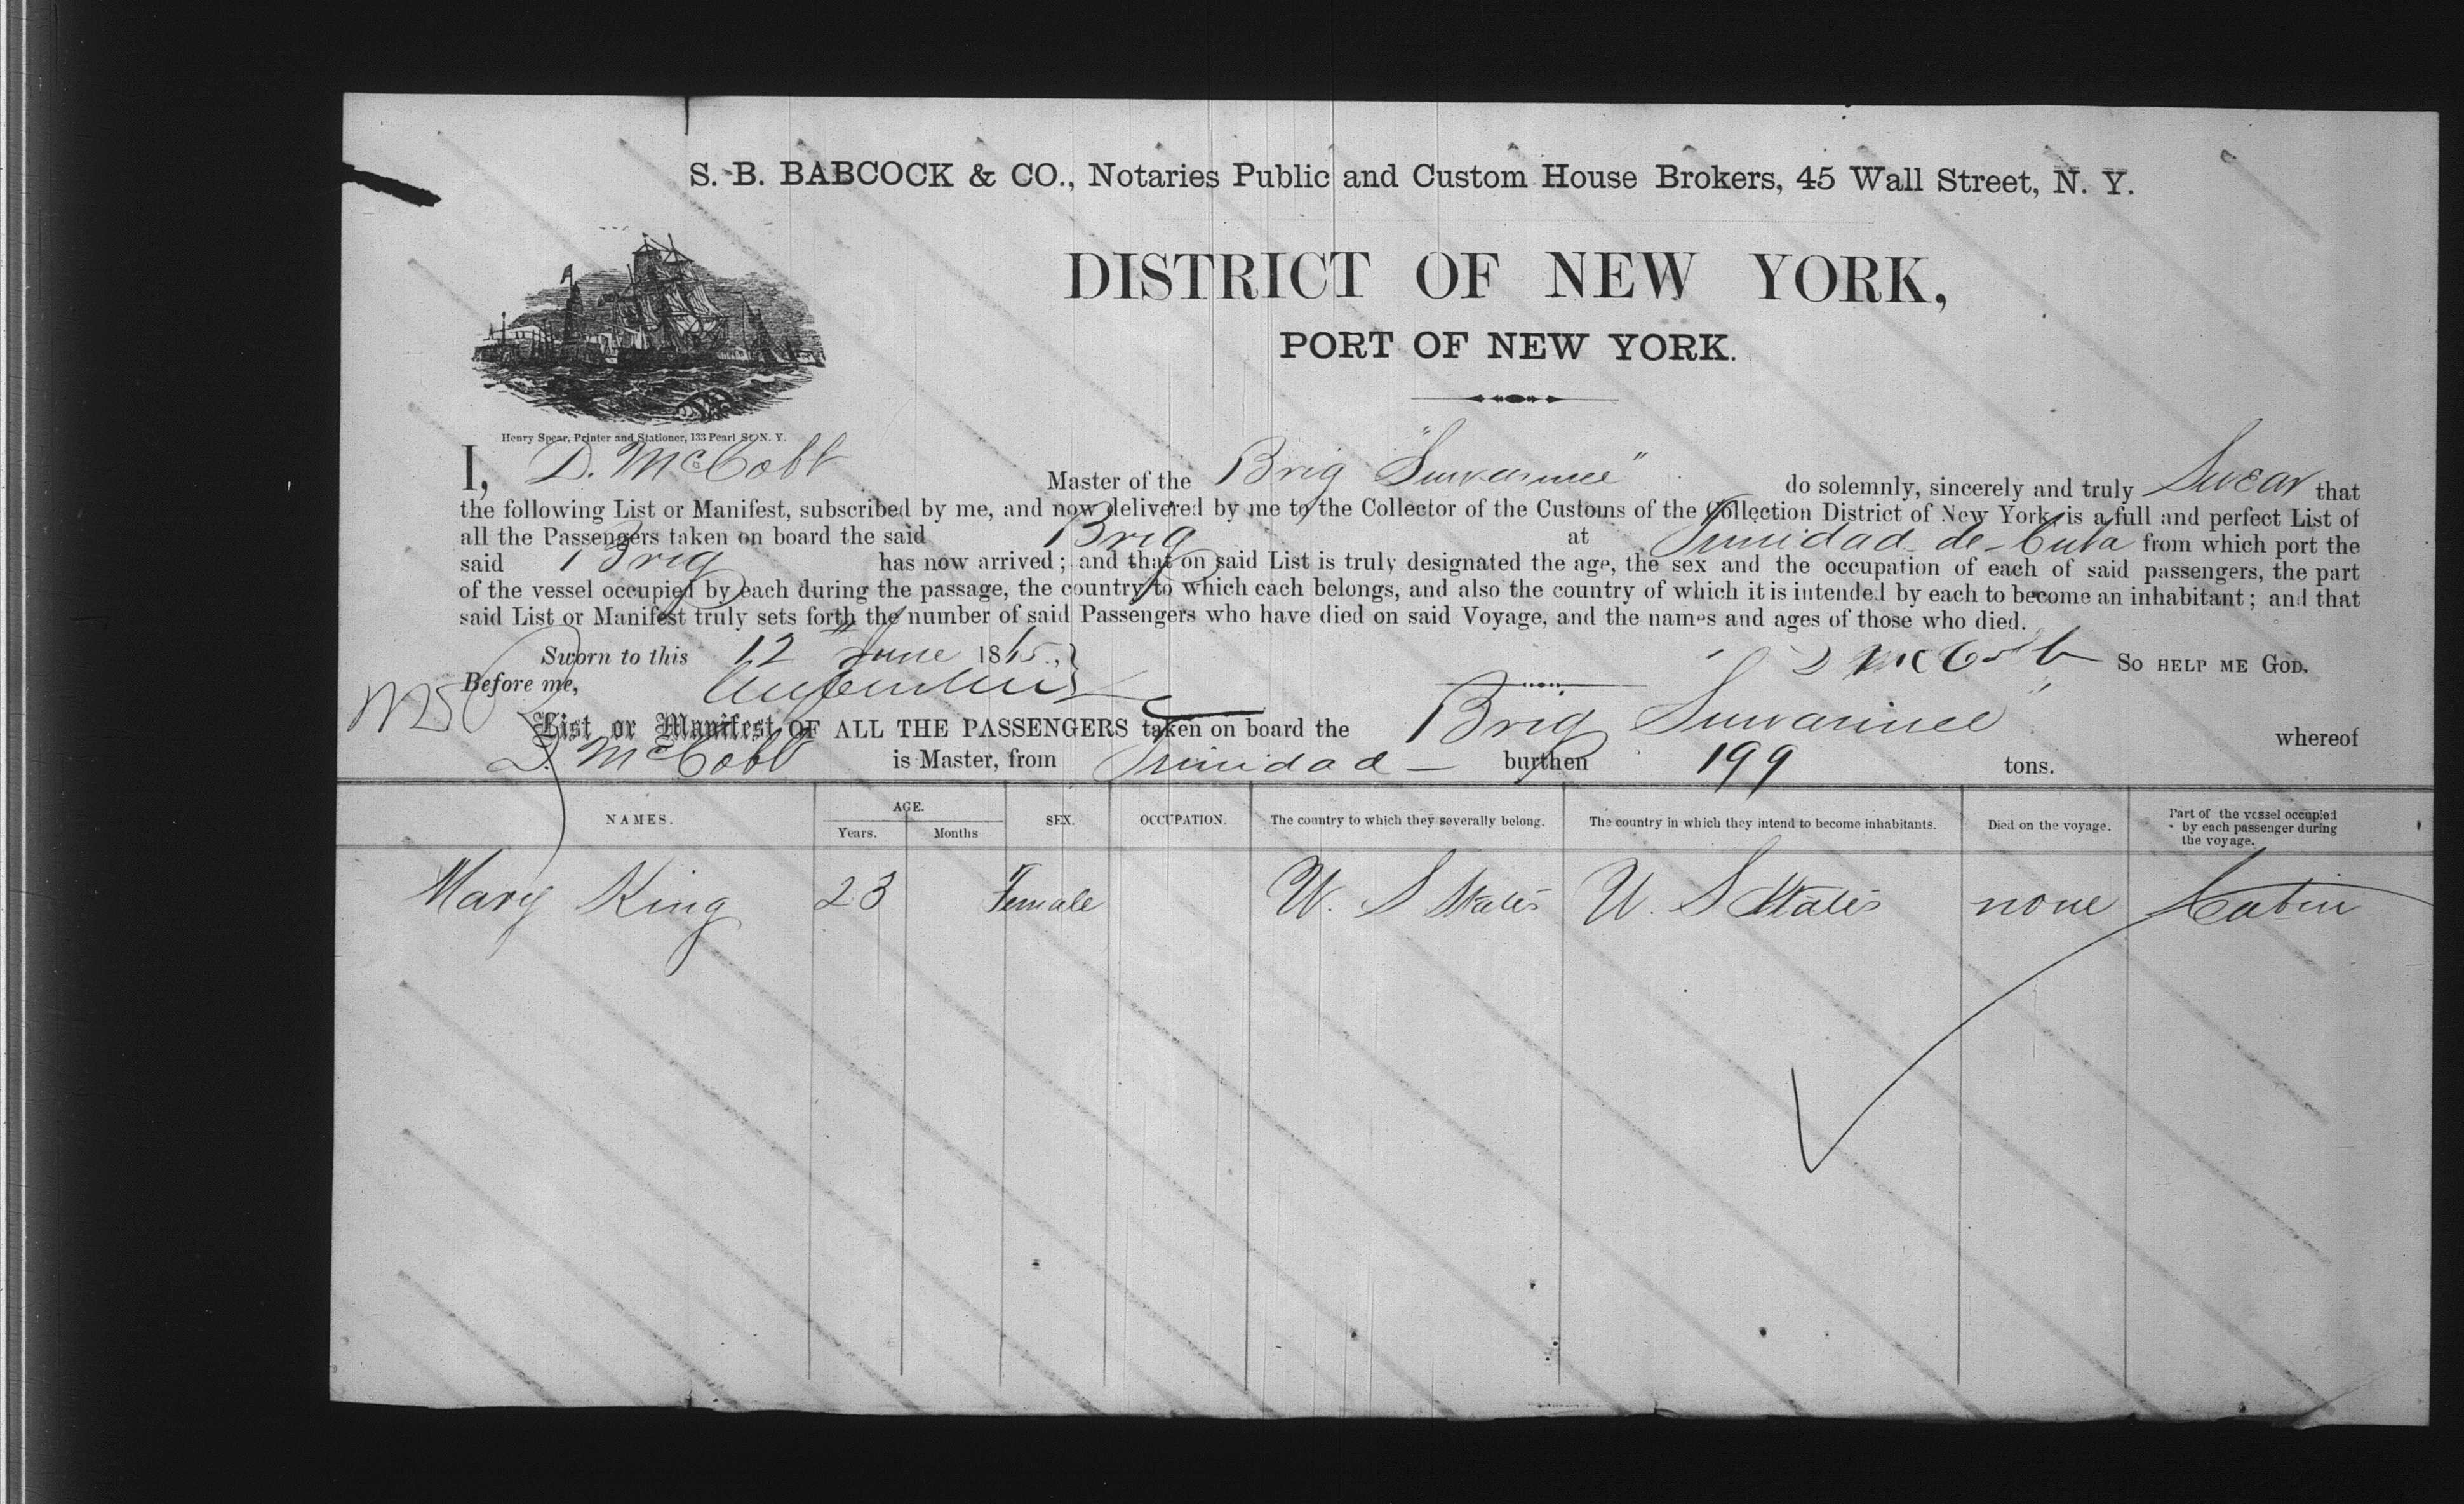 S. B. BABCOCK & CO., Notaries Public and Custom House Brokers, 45 Wall Street, N. Y.
DISTRICT OF NEW YORK,
PORT OF NEW YORK.
Henry Spear, Printer and Stationer, 133 Pearl St. N. Y.
I, D. McCobb Master of the Brig "Suwannee" do solemnly, sincerely and truly Swear that
the following List or Manifest, subscribed by me, and now delivered by me to the Collector of the Customs of the Collection District of New York, is a full and perfect List of
all the Passengers taken on board the said Brig at Trinidad de Cuba from which port the
said Brig has now arrived; and that on said List is truly designated the age, the sex and the occupation of each of said passengers, the part
of the vessel occupied by each during the passage, the country to which each belongs, and also the country of which it is intended by each to become an inhabitant; and that
said List or Manifest truly sets forth the number of said Passengers who have died on said Voyage, and the names and ages of those who died.
Sworn to this 12 June 1865, D McCobb SO HELP ME GOD.
Before me,
List or Manifest OF ALL THE PASSENGERS taken on board the Brig Suwannee whereof
D. McCobb is Master, from Trinidad – burthen 199 tons.
NAMES. AGE. Years. Months SEX. OCCUPATION. The country to which they severally belong. The country in which they intend to become inhabitants. Died on the voyage. Part of the vessel occupied by each passenger during the voyage.
Mary King 23 Female U. S States U. S States none Cabin